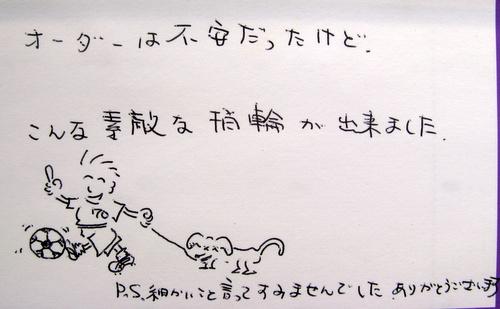 オーダーは不安だったけど.
こんな素敵な指輪が出来ました.
10
P.S.細かいこと言ってすみませんでした ありがとうございます